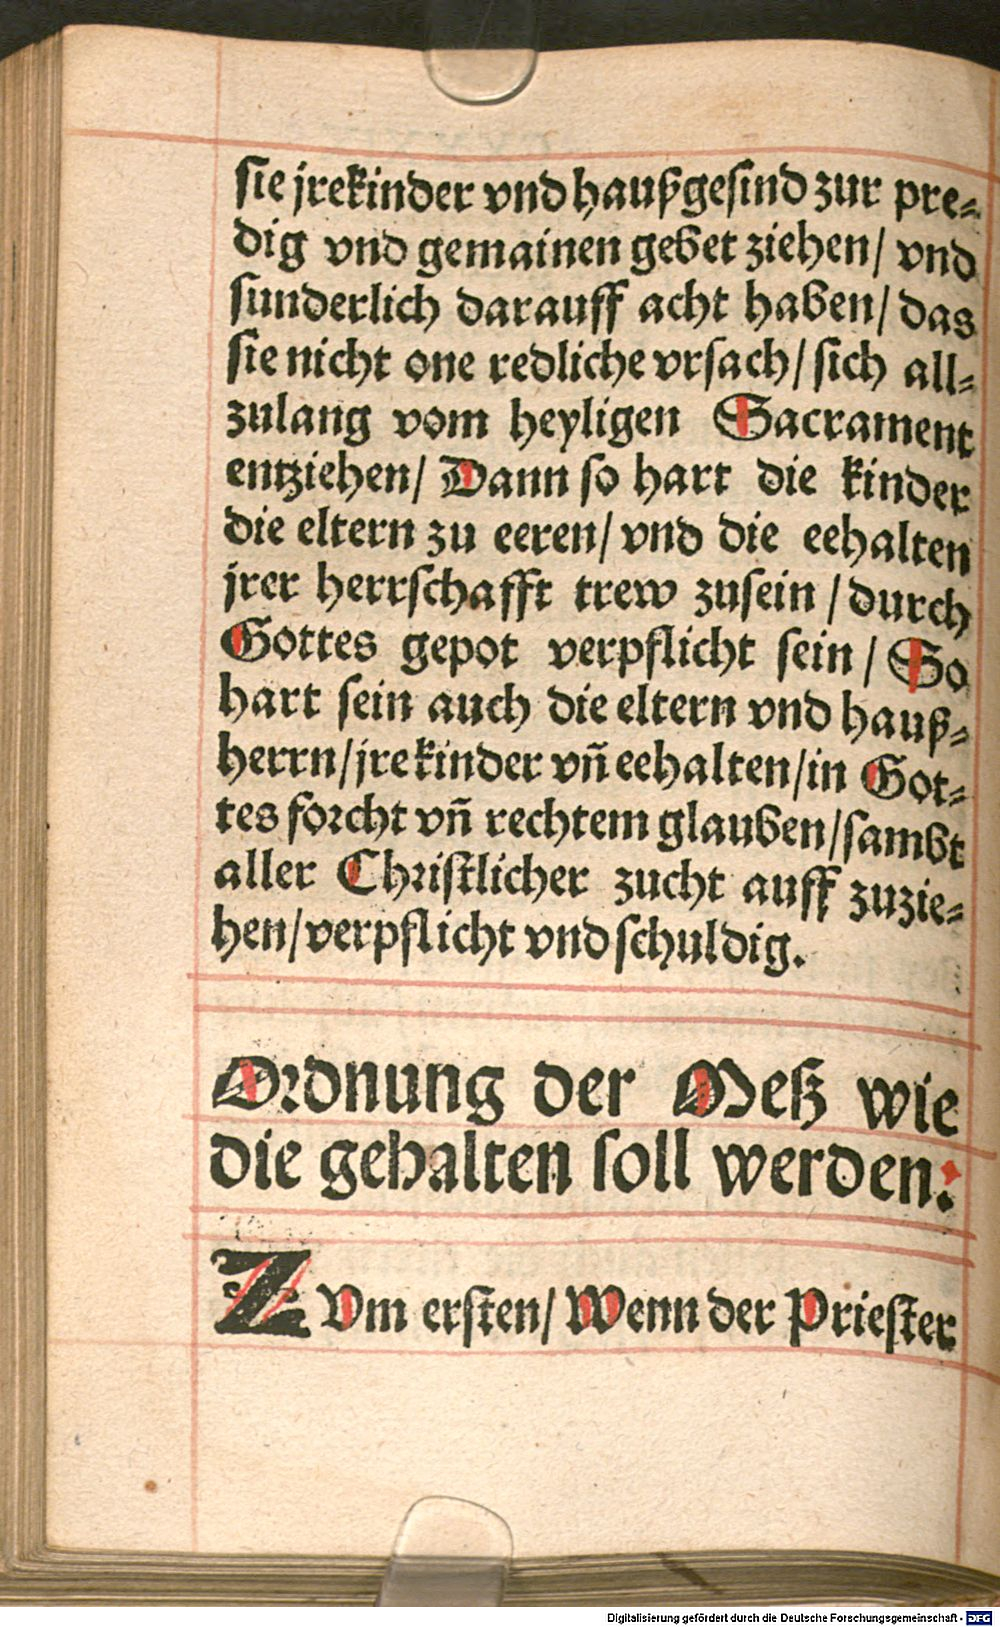 sie jre kinder vnd haußgesind zur pre-
dig vnd gemainen gebet ziehen/ vnd
sunderlich darauff acht haben/ das
sie nicht one redliche vrsach/ sich all-
zulang vom heyligen Sacrament
entziehen/ Dann so hart die kinder
die eltern zu eeren/ vnd die eehalten
jrer herrschafft trew zusein / durch
Gottes gepot verpflicht sein / So
hart sein auch die eltern vnd hauß-
herrn/ jre kinder vñ eehalten/ in Got-
tes forcht vñ rechtem glauben/ sambt
aller Christlicher zucht auff zuzie-
hen/ verpflicht vnd schuldig.
Ordnung der Meß wie
die gehalten soll werden:
ZVm ersten/ Wenn der Priester
Digitalisierung gefördert durch die Deutsche Forschungsgemeinschaft - DFG